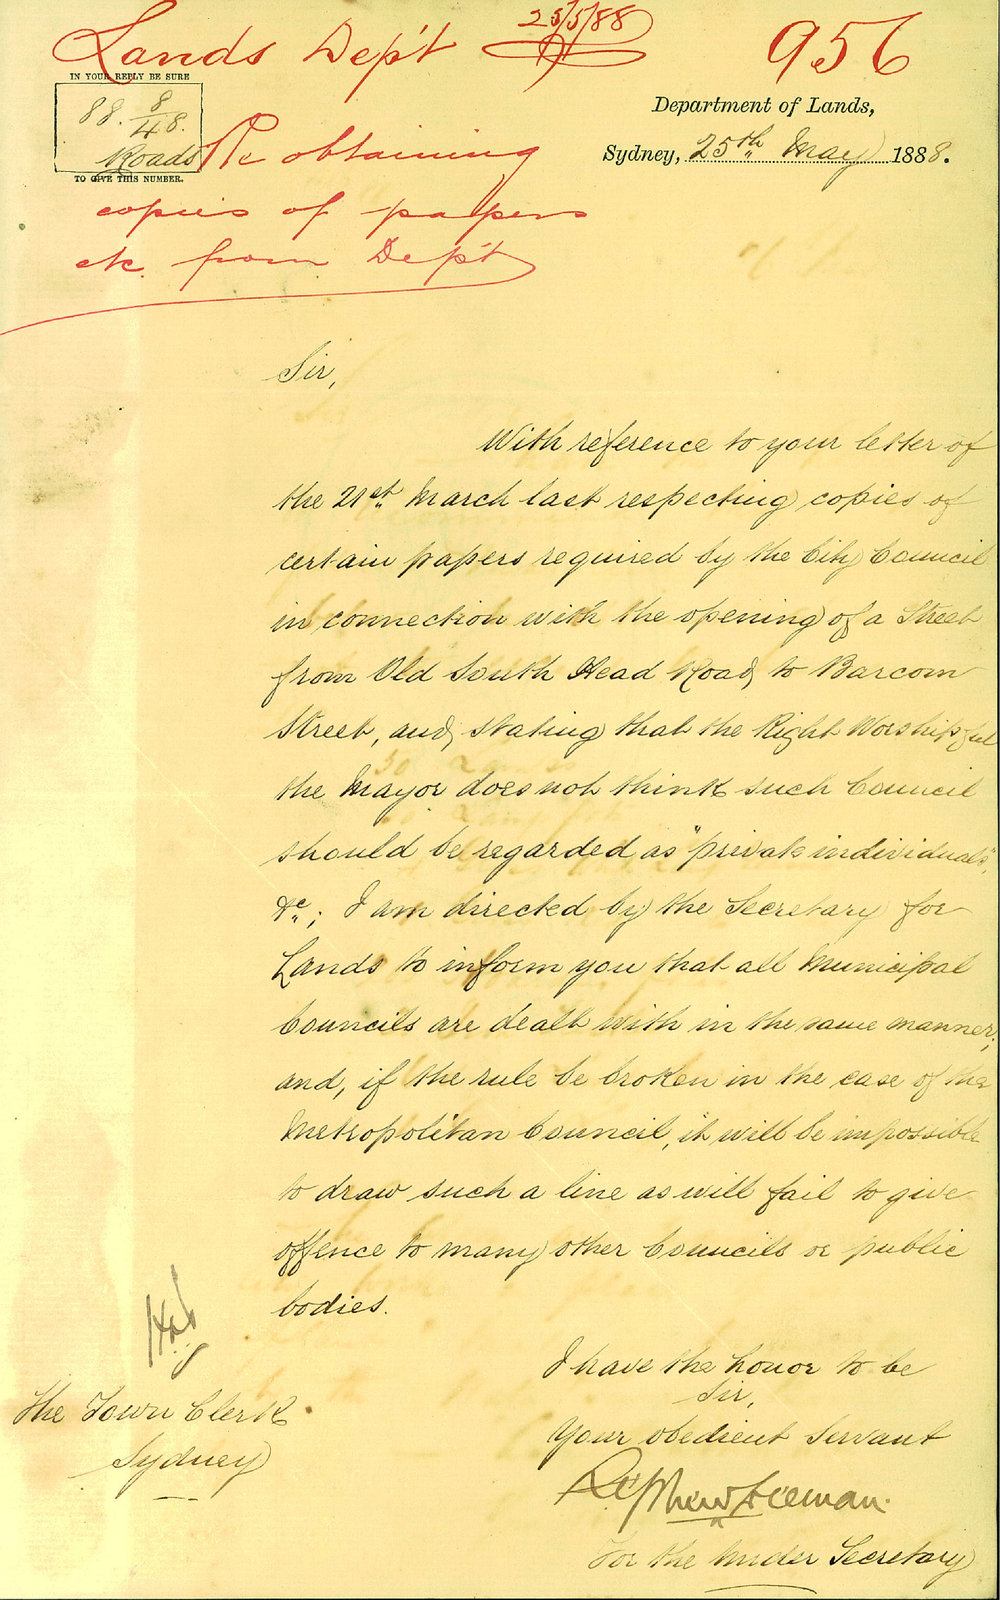 Lands Dep't 25/5/88 956
IN YOUR REPLY BE SURE
88. 8/48.
Roads
TO GIVE THIS NUMBER.
Re obtaining
copies of papers
etc. from Dep't
Department of Lands,
Sydney, 25th May 1888.
Sir,
With reference to your letter of
the 21st March last respecting copies of
certain papers required by the City Council
in connection with the opening of a Street
from Old South Head Road, to Barcom
Street, and, stating that the Right Worshipful
the Mayor does not think such Council
should be regarded as "private individuals",
&c.; I am directed by the Secretary for
Lands to inform you that all Municipal
Councils are dealt with in the same manner;
and, if the rule be broken in the case of the
Metropolitan Council, it will be impossible
to draw such a line as will fail to give
offence to many other Councils or public
bodies.
I have the honor to be
Sir,
Your obedient Servant
For the Under Secretary
The Town Clerk
Sydney